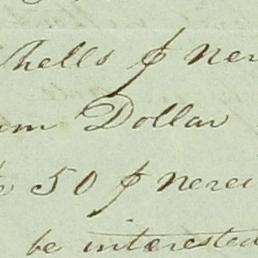 hells ⅌ ner
um Dollar
50 ⅌ nerei
be interested